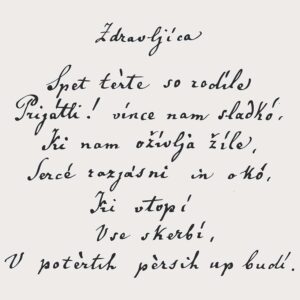 Zdravljíca
Spet tèrte so rodíle
Prijátli! vínce nam sladkó,
Ki nam oživlja žíle,
Sercé razjásni in okó,
Ki vtopí
Vse skerbí,
V potèrtih pèrsih up budí.